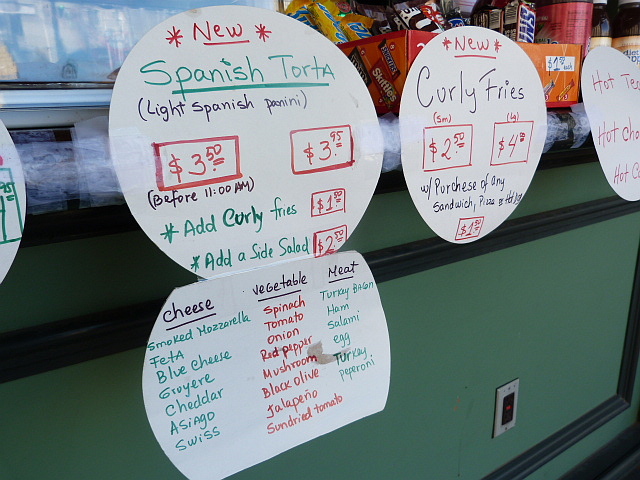 * New *
Spanish Torta
(Light spanish panini)
$3.50
$3.95
(Before 11:00 AM)
* Add Curly fries $1.50
* Add a Side Salad $2.50
cheese
Smoked Mozzarella
FetA
Blue Cheese
Gruyere
Cheddar
ASiAgo
Swiss
vegetable
Spinach
Tomato
Onion
Red pepper
Mushroom
Black olive
Jalapeño
Sundried tomato
Meat
Turkey Bacon
Ham
Salami
egg
Turkey
peperoni
* New *
Curly Fries
(sm)
$2.50
(lg)
w/ Purchese of any
Sandwich, Pizza or Hot Dog
Skittles
Hot
Hot
Hot